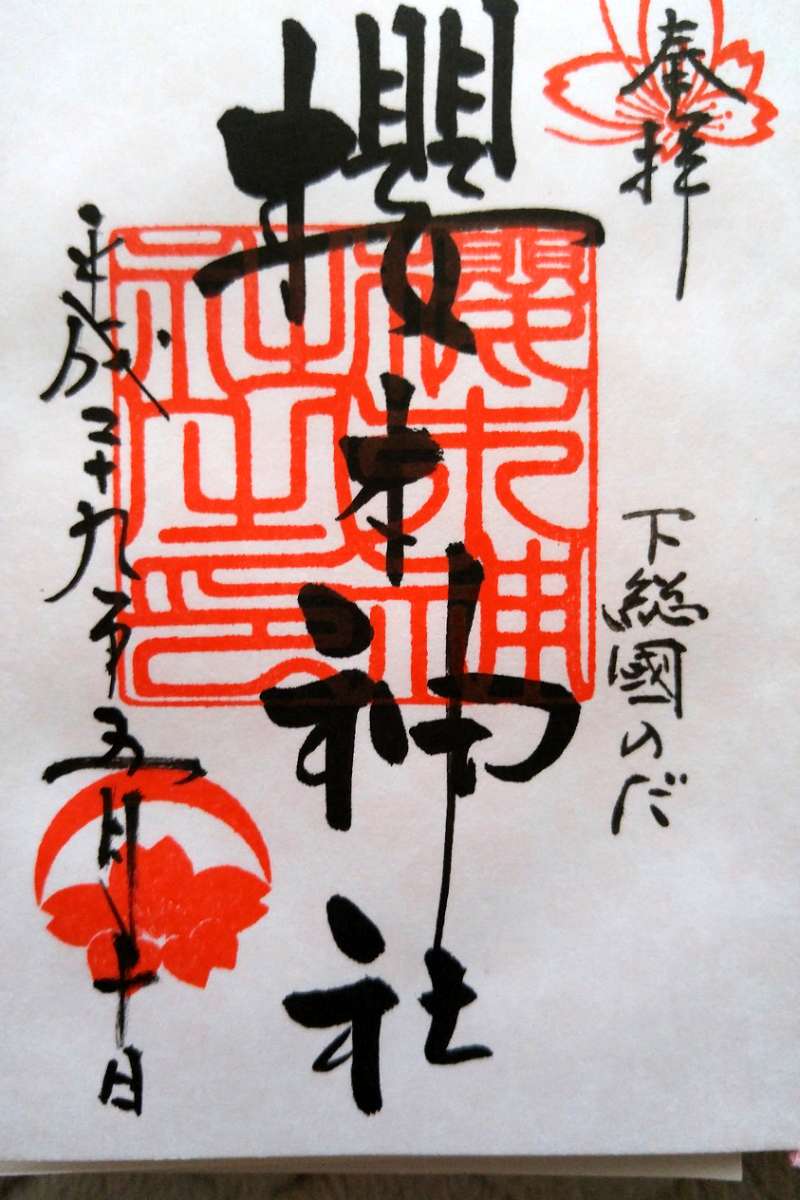 奉拝
下総國のだ
櫻木神社
櫻木神
社之印
平成二十九年五月二十日